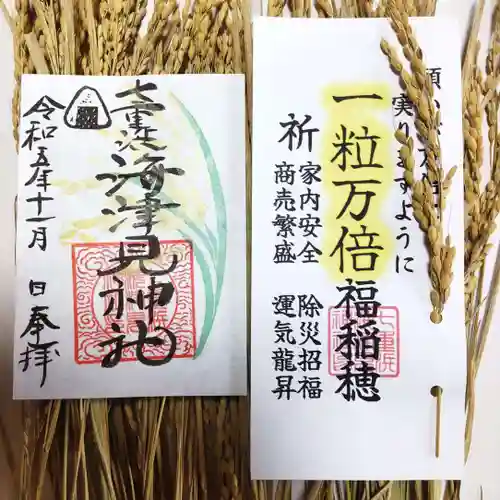 七重浜海津見神社
令和五年十一月 日奉拝
実りますように
一粒万倍福稲穂
祈
家内安全 除災招福
商売繁盛 運気龍昇